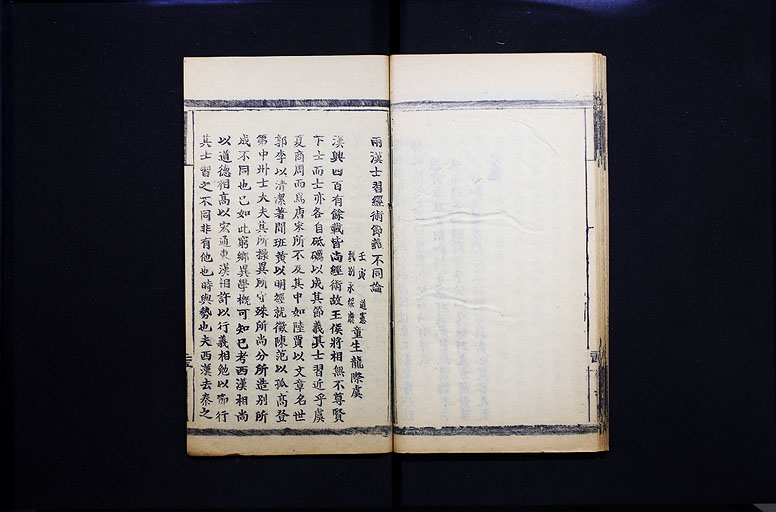 兩漢士習經術節義不同論
壬寅 道憲
觀永綏廳 童生龍際虞
漢興四百有餘載皆尚經術故王侯將相無不尊賢
下士而士亦各自砥礪以成其節義其士習近乎虞
夏商周而爲唐宋所不及其中如陸賈以文章名世
郭李以清潔著聞班黃以明經就徵陳范以孤高登
第中州士大夫其所操異所守殊所尚分所造別所
成不同也已如此窮鄉異學概可知已考西漢相尚
以道德相高以宏通東漢相許以行義相勉以廟行
其士習之不同非有他也時與勢也夫西漢去秦之